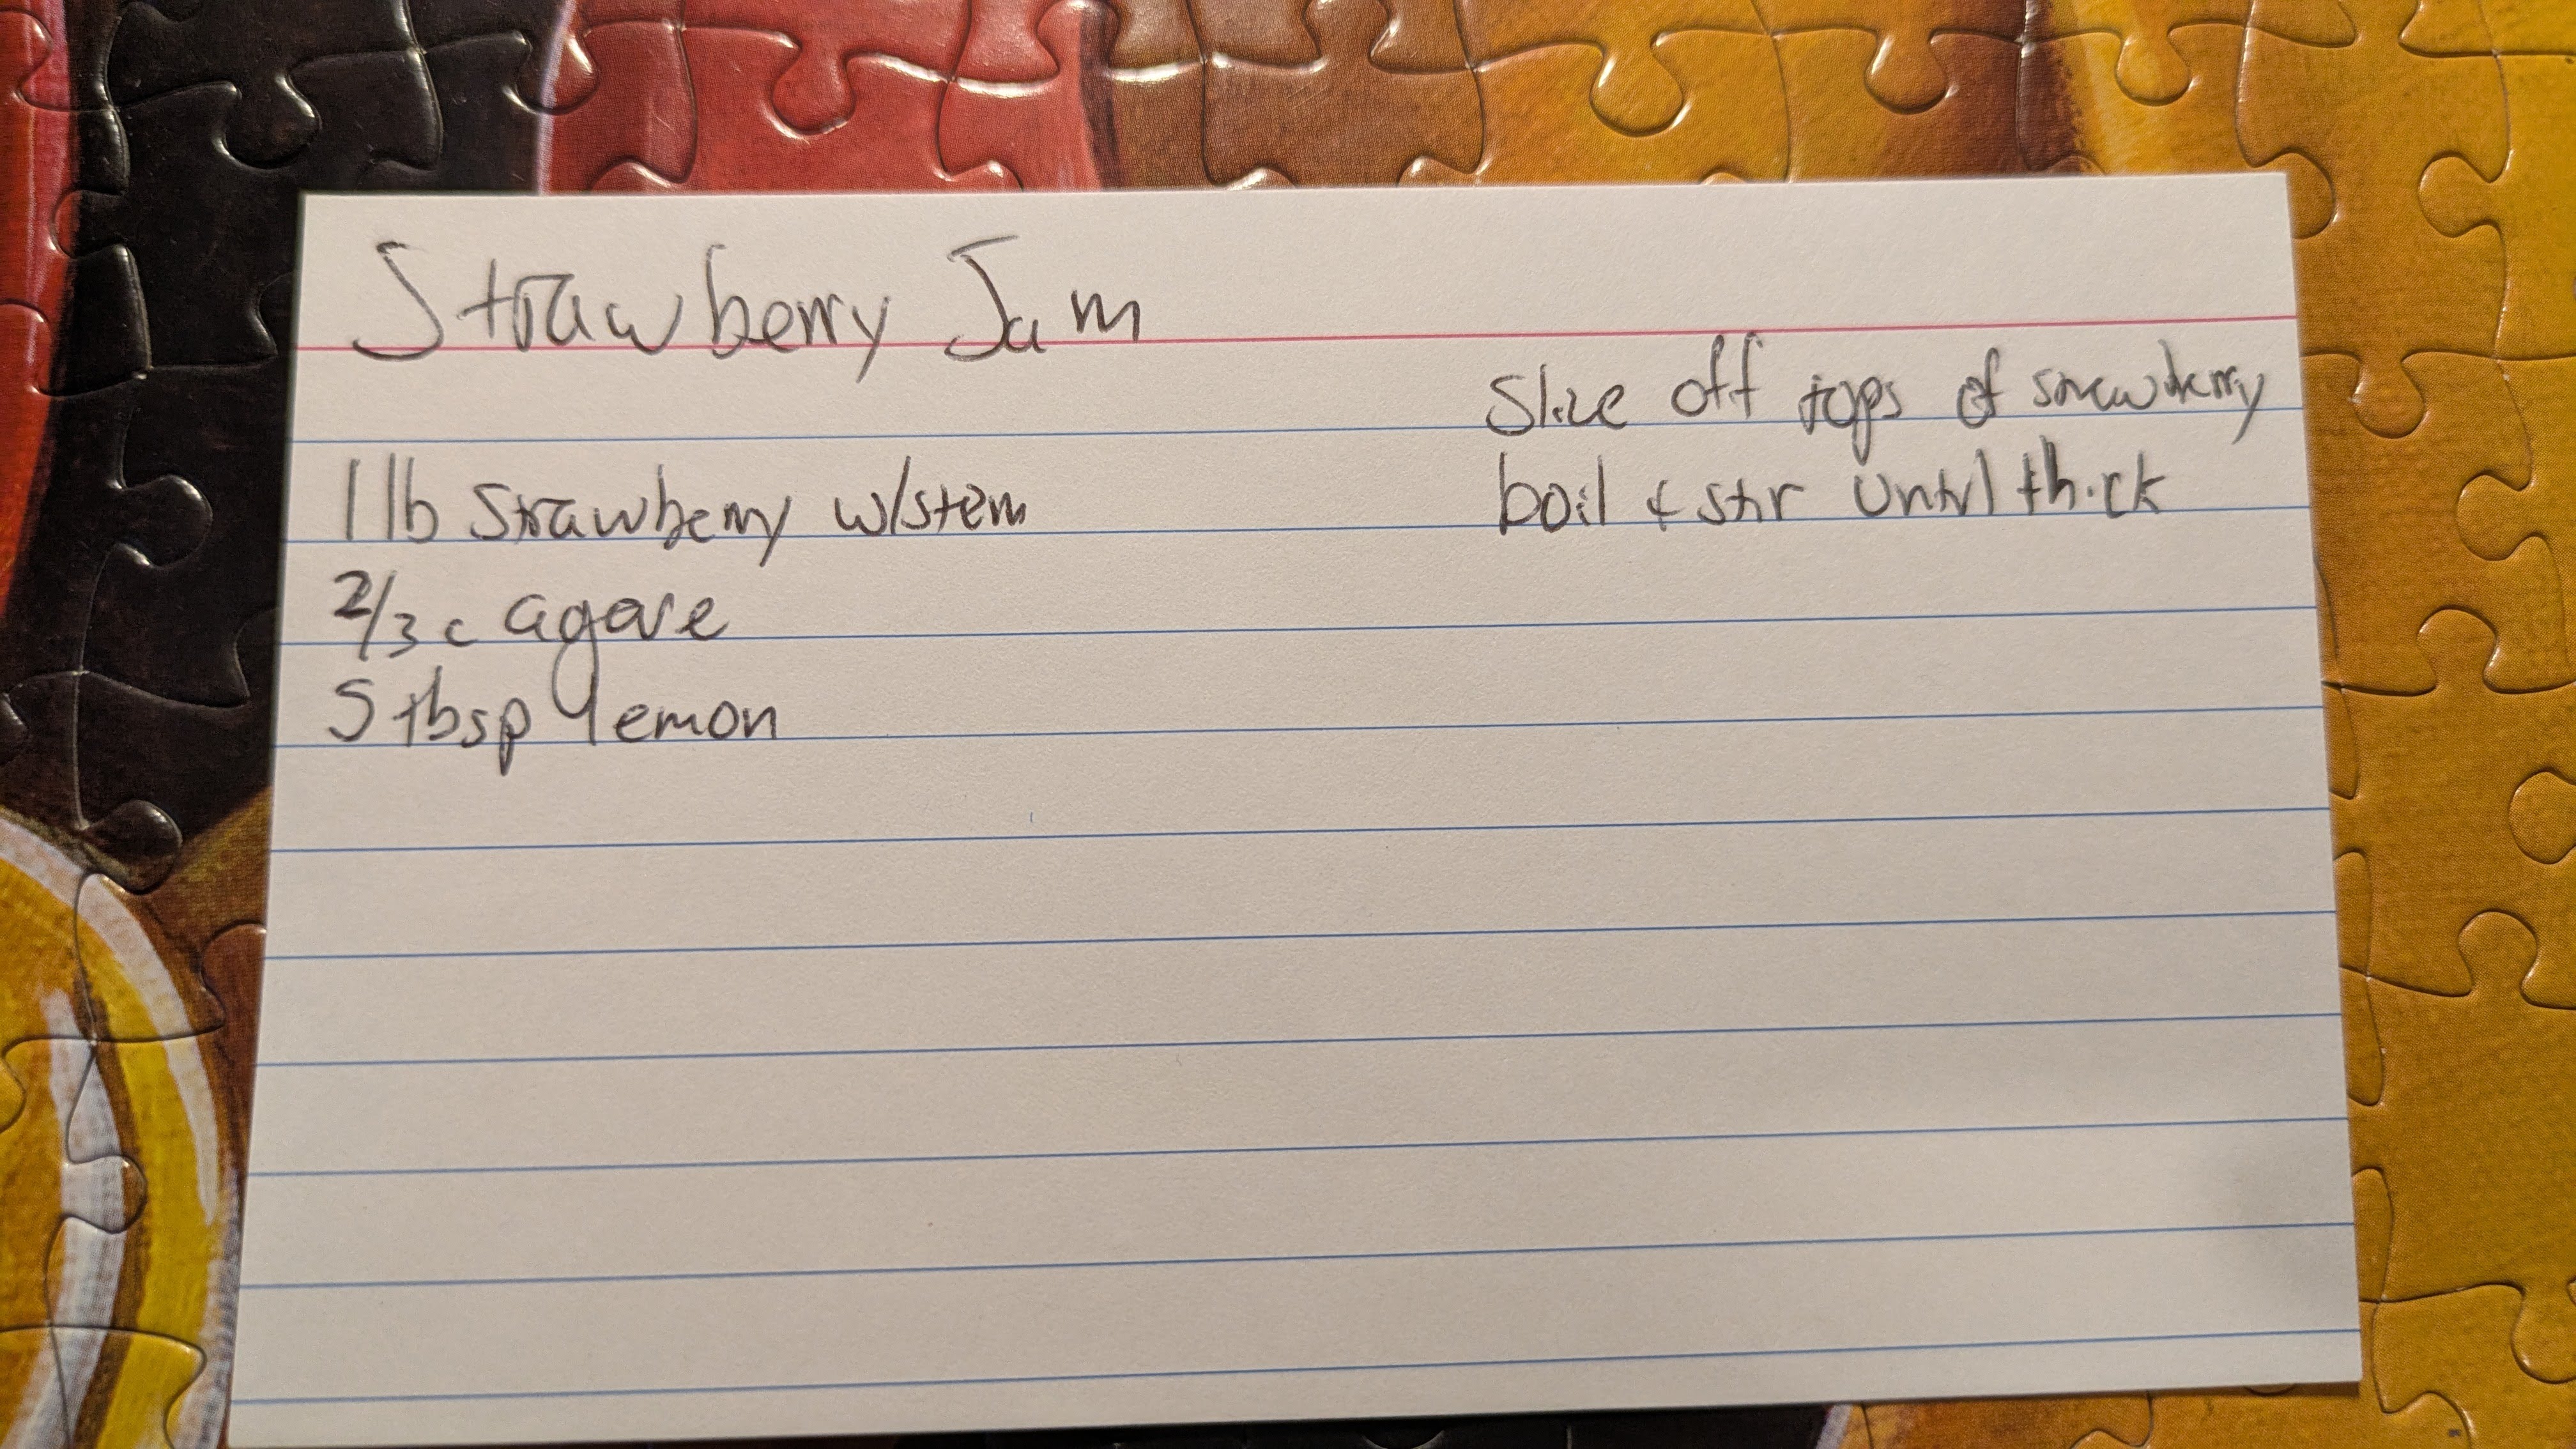 Strawberry Jam
1 lb strawberry w/stem
2/3 c agave
5 tbsp lemon
Slice off tops of strawberry
boil & stir until thick